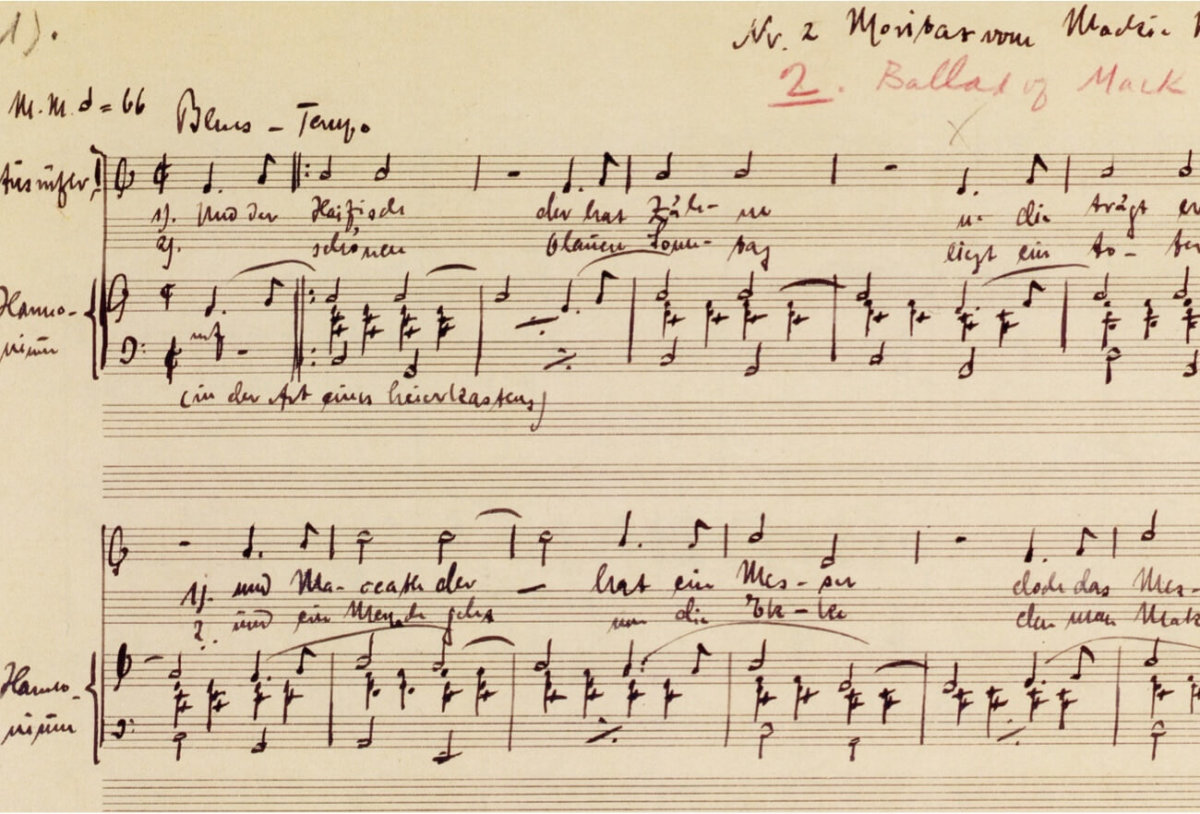 Nr. 2 Moritat vom Mackie
2. Ballad of Mack
M.M. = 66 Blues - Tempo
Ausrufer
1). Und der Haifisch der hat Zäh- ne u. die trägt er
2). schönen blauen Sonn- tag liegt ein to- ter
Harmo-
nium
mf
(in der Art eines Leierkastens)
1). und Ma- ceath der hat ein Mes- ser doch das Mes-
2. und ein Mensch geht um die Ek- ke den man Mak
Harmo-
nium